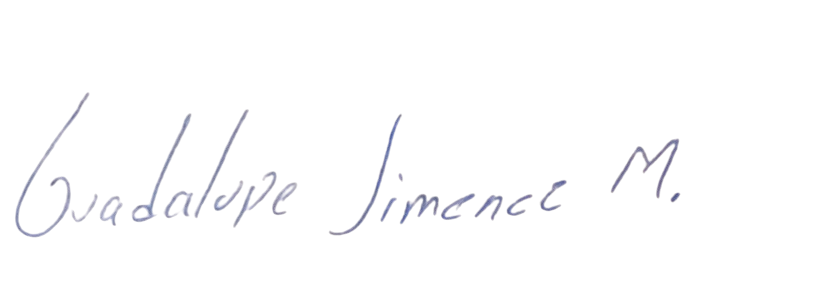 Guadalupe Jimenez M.